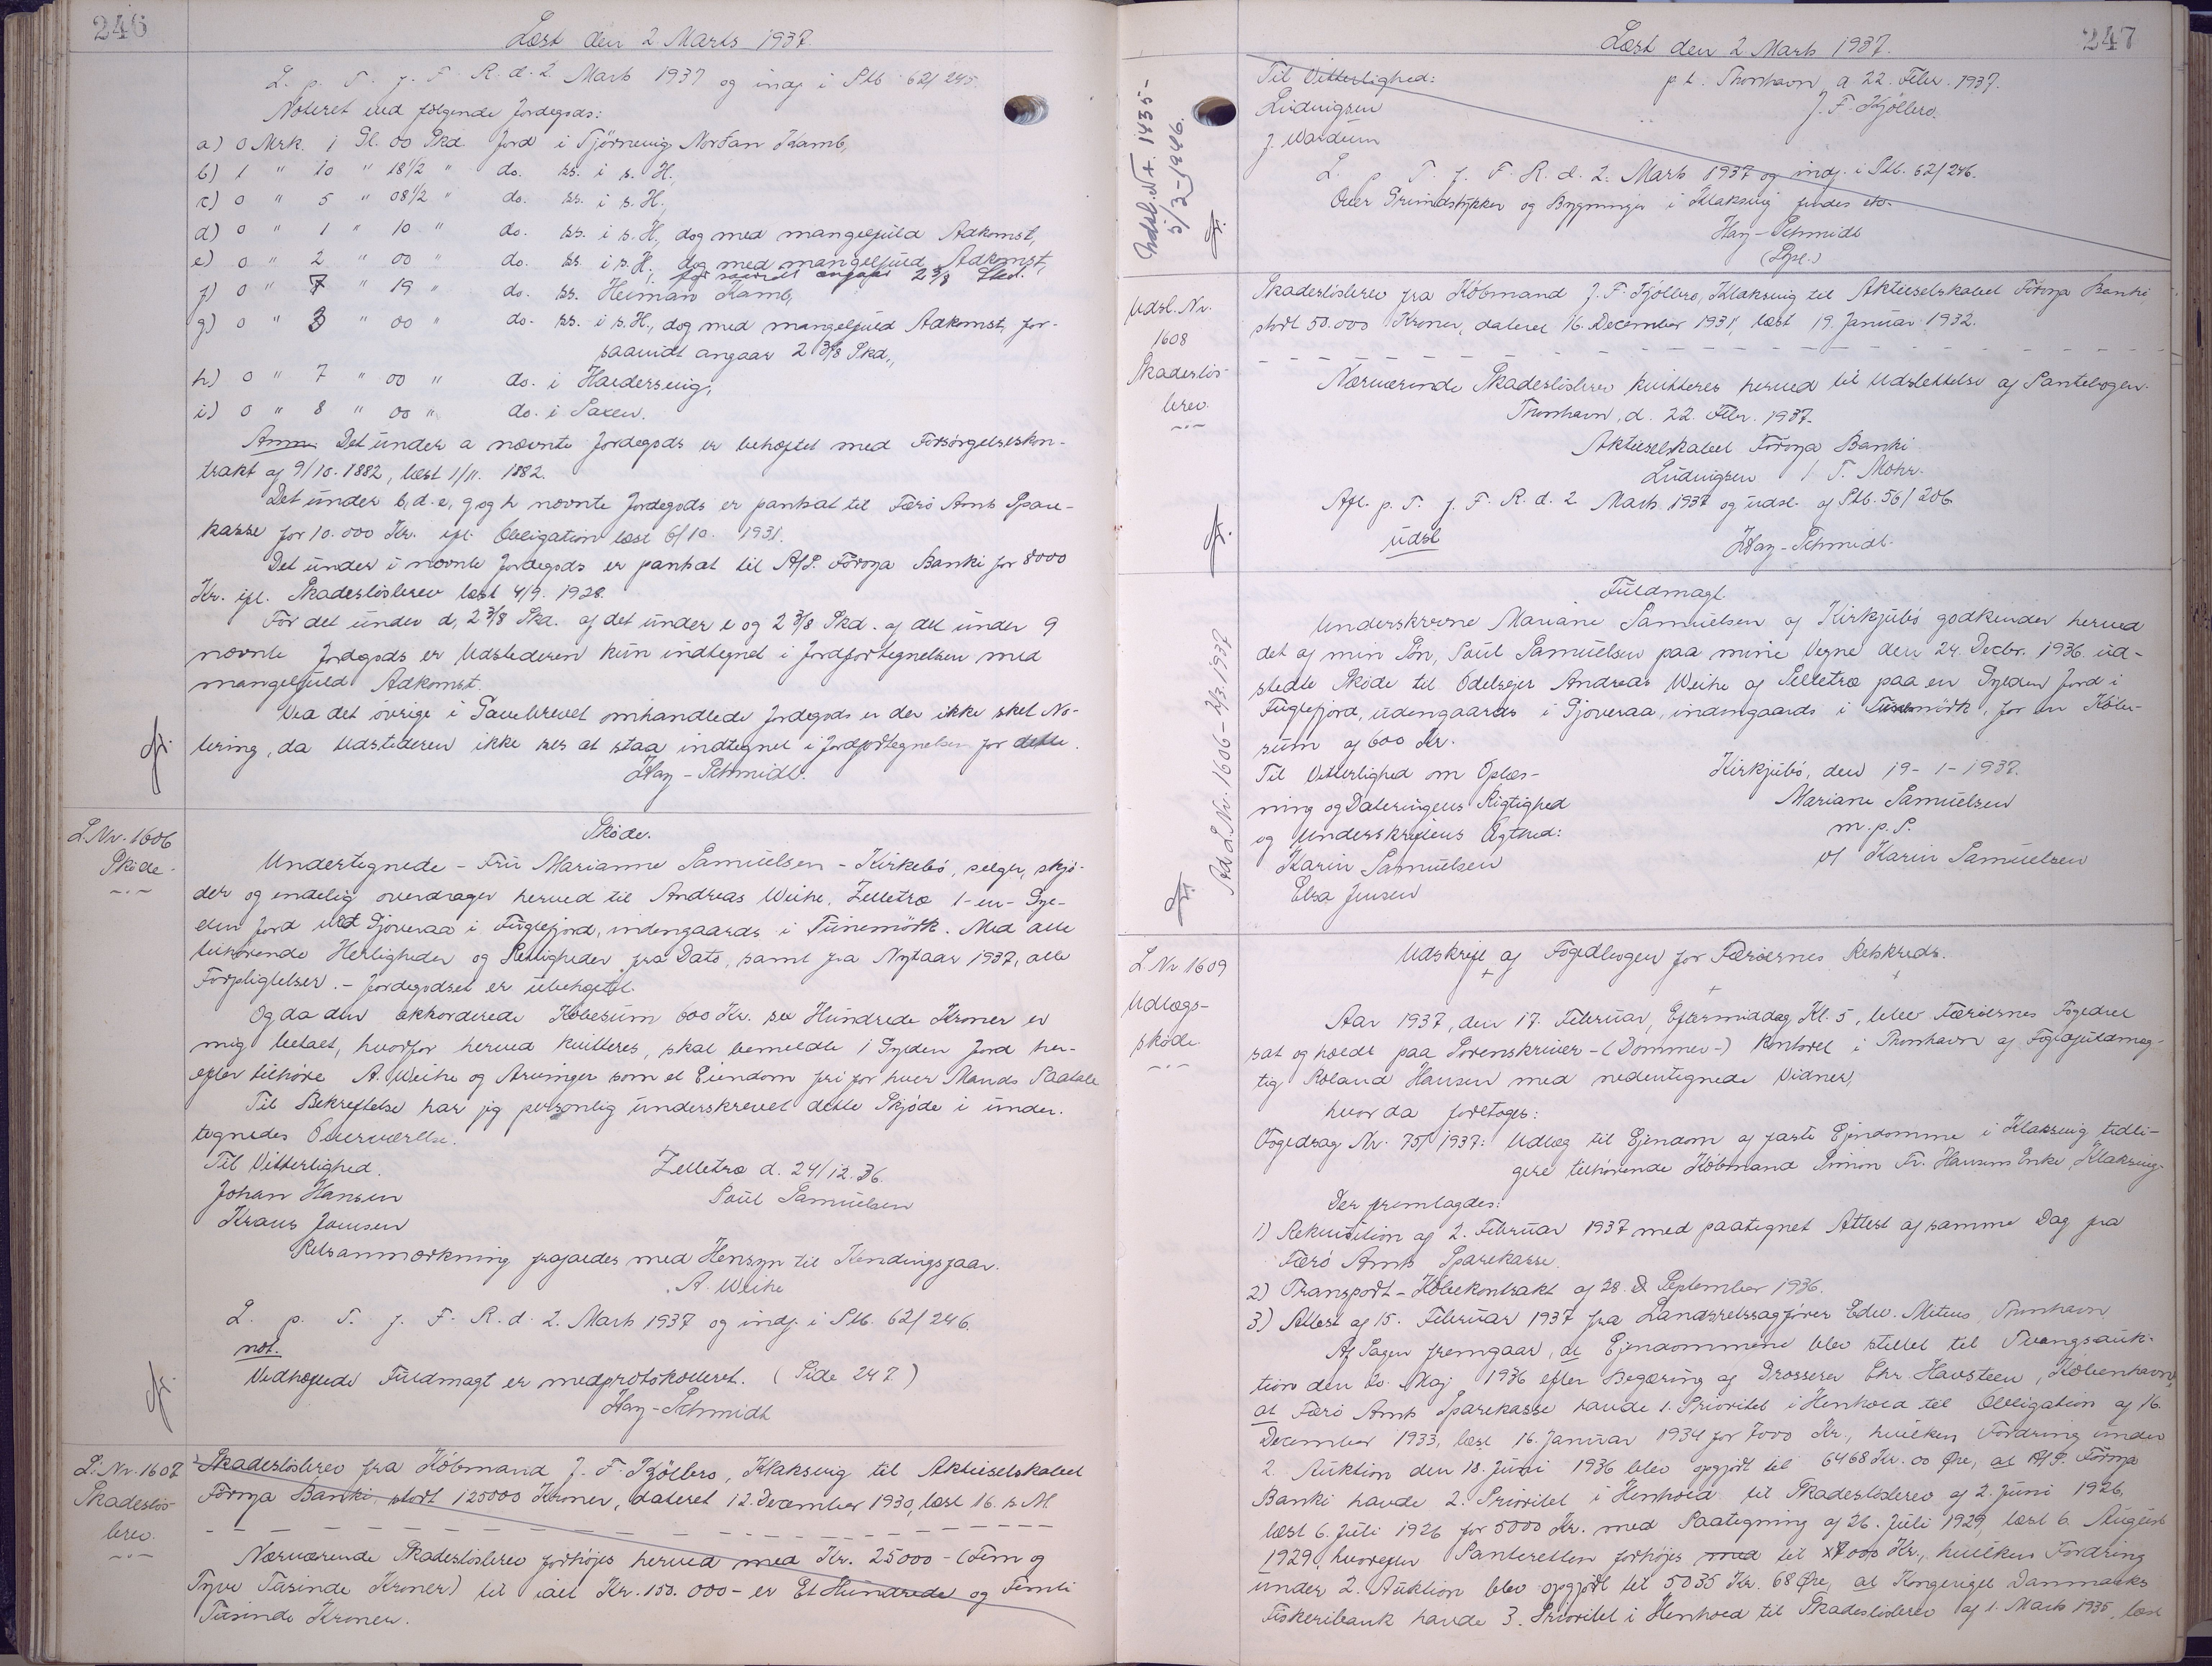 246
Læst den 2 Marts 1937.
L. p. T. f. F. R. d. 2. Marts 1937 og indf. i Ptb. 62/245.
Noteret ved følgende Jordegods:
a) 0 Mrk. 1 Gl. 00 Skd. Jord i Tjörnevig, Nordan Kamb,
b) 1 " 10 " 18 1/2 " do. ss. i s. H.,
c) 0 " 5 " 08 1/2 " do. ss. i s. H.,
d) 0 " 1 " 10 " do. ss. i s. H., dog med mangelfuld Adkomst,
e) 0 " 2 " 00 " do. ss. i s. H., dog med mangelfuld Adkomst,
forsaavidt angaar 2 3/8 Skd.
f) 0 " 7 " 19 " do. ss. Heiman Kamb,
g) 0 " 3 " 00 " do. ss. i s. H., dog med mangelfuld Adkomst, for-
saavidt angaar 2 3/8 Skd.,
h) 0 " 7 " 00 " do. i Haldersvig,
i) 0 " 8 " 00 " do. i Saxen.
Anm. Det under a nævnte Jordegods er behæftet med Forsørgelseskon-
trakt af 9/10. 1882, læst 1/11. 1882.
Det under b, d. e, g og h nævnte Jordegods er pantsat til Færø Amts Spare-
kasse for 10.000 Kr. ifl. Obligation læst 6/10. 1931.
Det under i nævnte Jordegods er pantsat til A/S. Föroya Banki for 8000
Kr. ifl. Skadesløsbrev læst 4/9. 1928.
For det under d, 2 3/8 Skd. af det under e og 2 3/8 Skd. af det under g
nævnte Jordegods er Udstederen kun indtegnet i Jordfortegnelsen med
mangelfuld Adkomst.
Ved det øvrige i Gavebrevet omhandlede Jordegods er der ikke sket No-
tering, da Udstederen ikke ses at staa indtegnet i Jordfortegnelsen for dette.
Hay-Schmidt.
L. Nr. 1606
Skøde.
Skøde.
Undertegnede - Fru Marianne Samuelsen - Kirkebö, selger, skjö-
der og endelig overdrager herved til Andreas Weihe, Zelletræ 1-en- Gyl-
den Jord ved Gjoveraa i Fuglefjord, indengaards i Tunemörk. Med alle
tilhørende Herligheder og Rettigheder fra Dato, samt fra Nytaar 1937, alle
Forpligtelser. - Jordegodset er ubehæftet.
Og da den akkorderede Købesum 600 Kr. sex Hundrede Kroner er
mig betalt, hvorfor herved kvitteres, skal bemeldte 1 Gylden Jord her-
efter tilhøre A. Weihe og Arvinger som et Eiendom fri for hver Mands Paatale.
Til Bekreftelse har jeg personlig underskrevet dette Skjöde i under-
tegnedes Overværelse.
Til Vitterlighed. Zelletræ d. 24/12. 36.
Johan Hansen Poul Samuelsen
Kraus Joensen
Retsanmærkning frafaldes med Hensyn til Kendingsfaar.
A. Weihe
L. p. T. f. F. R. d. 2. Marts 1937 og indf. i Ptb. 62/246.
not.
Vedhæftede Fuldmagt er medprotokolleret. (Side 247)
Hay-Schmidt
L. Nr. 1607
Skadesløs-
brev.
Skadesløsbrev fra Köbmand J. F. Kjölbro, Klaksvig til Aktieselskabet
Föroya Banki stort 125000 Kroner, dateret 12. December 1930, læst 16. s. M.
Nærværende Skadesløsbrev forhøjes herved med Kr. 25000 - (Fem og
Tyve Tusinde Kroner) til ialt Kr. 150.000 - er Et Hundrede og Femti
Tusinde Kroner.
247
Læst den 2 Marts 1937.
Til Vitterlighed: p. t. Thorshavn, d. 22. Febr. 1937.
Ludvigsen J. F. Kjölbro.
J. Waldum
L. p. T. f. F. R. d. 2. Marts 1937 og indf. i Ptb. 62/246.
Over Grundstykker og Bygninger i Klaksvig findes etc.
Hay-Schmidt
(Spl.)
Indbl. Nr. 1435-
5/3-1946.
Udsl. Nr.
1608
Skadesløs-
brev.
Skadesløsbrev fra Köbmand J. F. Kjölbro, Klaksvig til Aktieselskabet Föroya Banki
stort 50.000 Kroner, dateret 16. December 1931, læst 19. Januar 1932.
Nærværende Skadesløsbrev kvitteres herved til Udslettelse af Pantebogen.
Thorshavn, d. 22. Febr. 1937.
Aktieselskabet Föroya Banki
Ludvigsen / T. Mohr.
Afl. p. T. f. F. R. d. 2. Marts 1937 og udsl. af Ptb. 56/206
udsl. Hay-Schmidt.
Ad L. Nr. 1606-2/3. 1937
Fuldmagt.
Underskrevne Mariane Samuelsen af Kirkjubö godkender herved
det af min Søn, Poul Samuelsen paa mine Vegne den 24. Decbr. 1936 ud-
stedte Skøde til Odelsejer Andreas Weihe af Selletræ paa en Gylden Jord i
Fuglefjord, udengaards i Gjoveraa, indengaards i Tunemörk, for en Købe-
sum af 600 Kr.
Til Vitterlighed om Oplæs- Kirkjubö, den 19-1-1937.
ning og Dateringens Rigtighed Mariane Samuelsen
og Underskriftens Ægthed: m. p. P.
Karin Samuelsen v/ Karin Samuelsen
Elsa Jensen
L. Nr 1609
Udlægs-
skøde.
Udskrift af Fogedbogen for Færøernes Retskreds.
Aar 1937, den 17. Februar, Eftermiddag Kl. 5, blev Færøernes Fogedret
sat og holdt paa Sorenskriver-(Dommer-) Kontoret i Thorshavn af Fogedfuldmæg-
tig Roland Hansen med nedentegnede Vidner,
hvor da foretoges:
Fogedsag Nr. 75/1937: Udlæg til Ejendom af faste Ejendomme i Klaksvig tidli-
gere tilhørende Købmand Simon Fr. Hansens Enke, Klaksvig.
Der fremlagdes:
1) Rekvisition af 2. Februar 1937 med paategnet Attest af samme Dag fra
Færø Amts Sparekasse.
2) Transport-Købekontrakt af 28. September 1936.
3) Attest af 15. Februar 1937 fra Landsretssagfører Edw. Mitens, Thorshavn.
Af Sagen fremgaar, at Ejendommene blev stillet til Tvangsauk-
tion den 20. Maj 1936 efter Begæring af Grosserer Chr. Havsteen, København,
at Færö Amts Sparekasse havde 1. Prioritet i Henhold til Obligation af 16.
December 1933, læst 16. Januar 1934 for 7000 Kr., hvilken Fordring under
2. Auktion den 18. Juni 1936 blev opgjort til 6468 Kr. 00 Øre, at A/S. Föroya
Banki havde 2. Prioritet i Henhold til Skadesløsbrev af 2. Juni 1926,
læst 6. Juli 1926 for 5000 Kr. med Paategning af 26. Juli 1929, læst 6. August
1929, hvorefter Panteretten forhøjes med til 7000 Kr., hvilken Fordring
under 2. Auktion blev opgjort til 5035 Kr. 68 Øre, at Kongeriget Danmarks
Fiskeribank havde 3. Prioritet i Henhold til Skadesløsbrev af 1. Marts 1935, læst